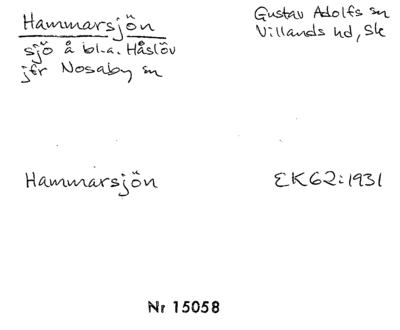 Hammarsjön
sjö å bl.a. Håslöv
jfr Nosaby sn
Gustav Adolfs sn
Villands hd, Sk
Hammarsjön
EK62:1931
Nr 15058